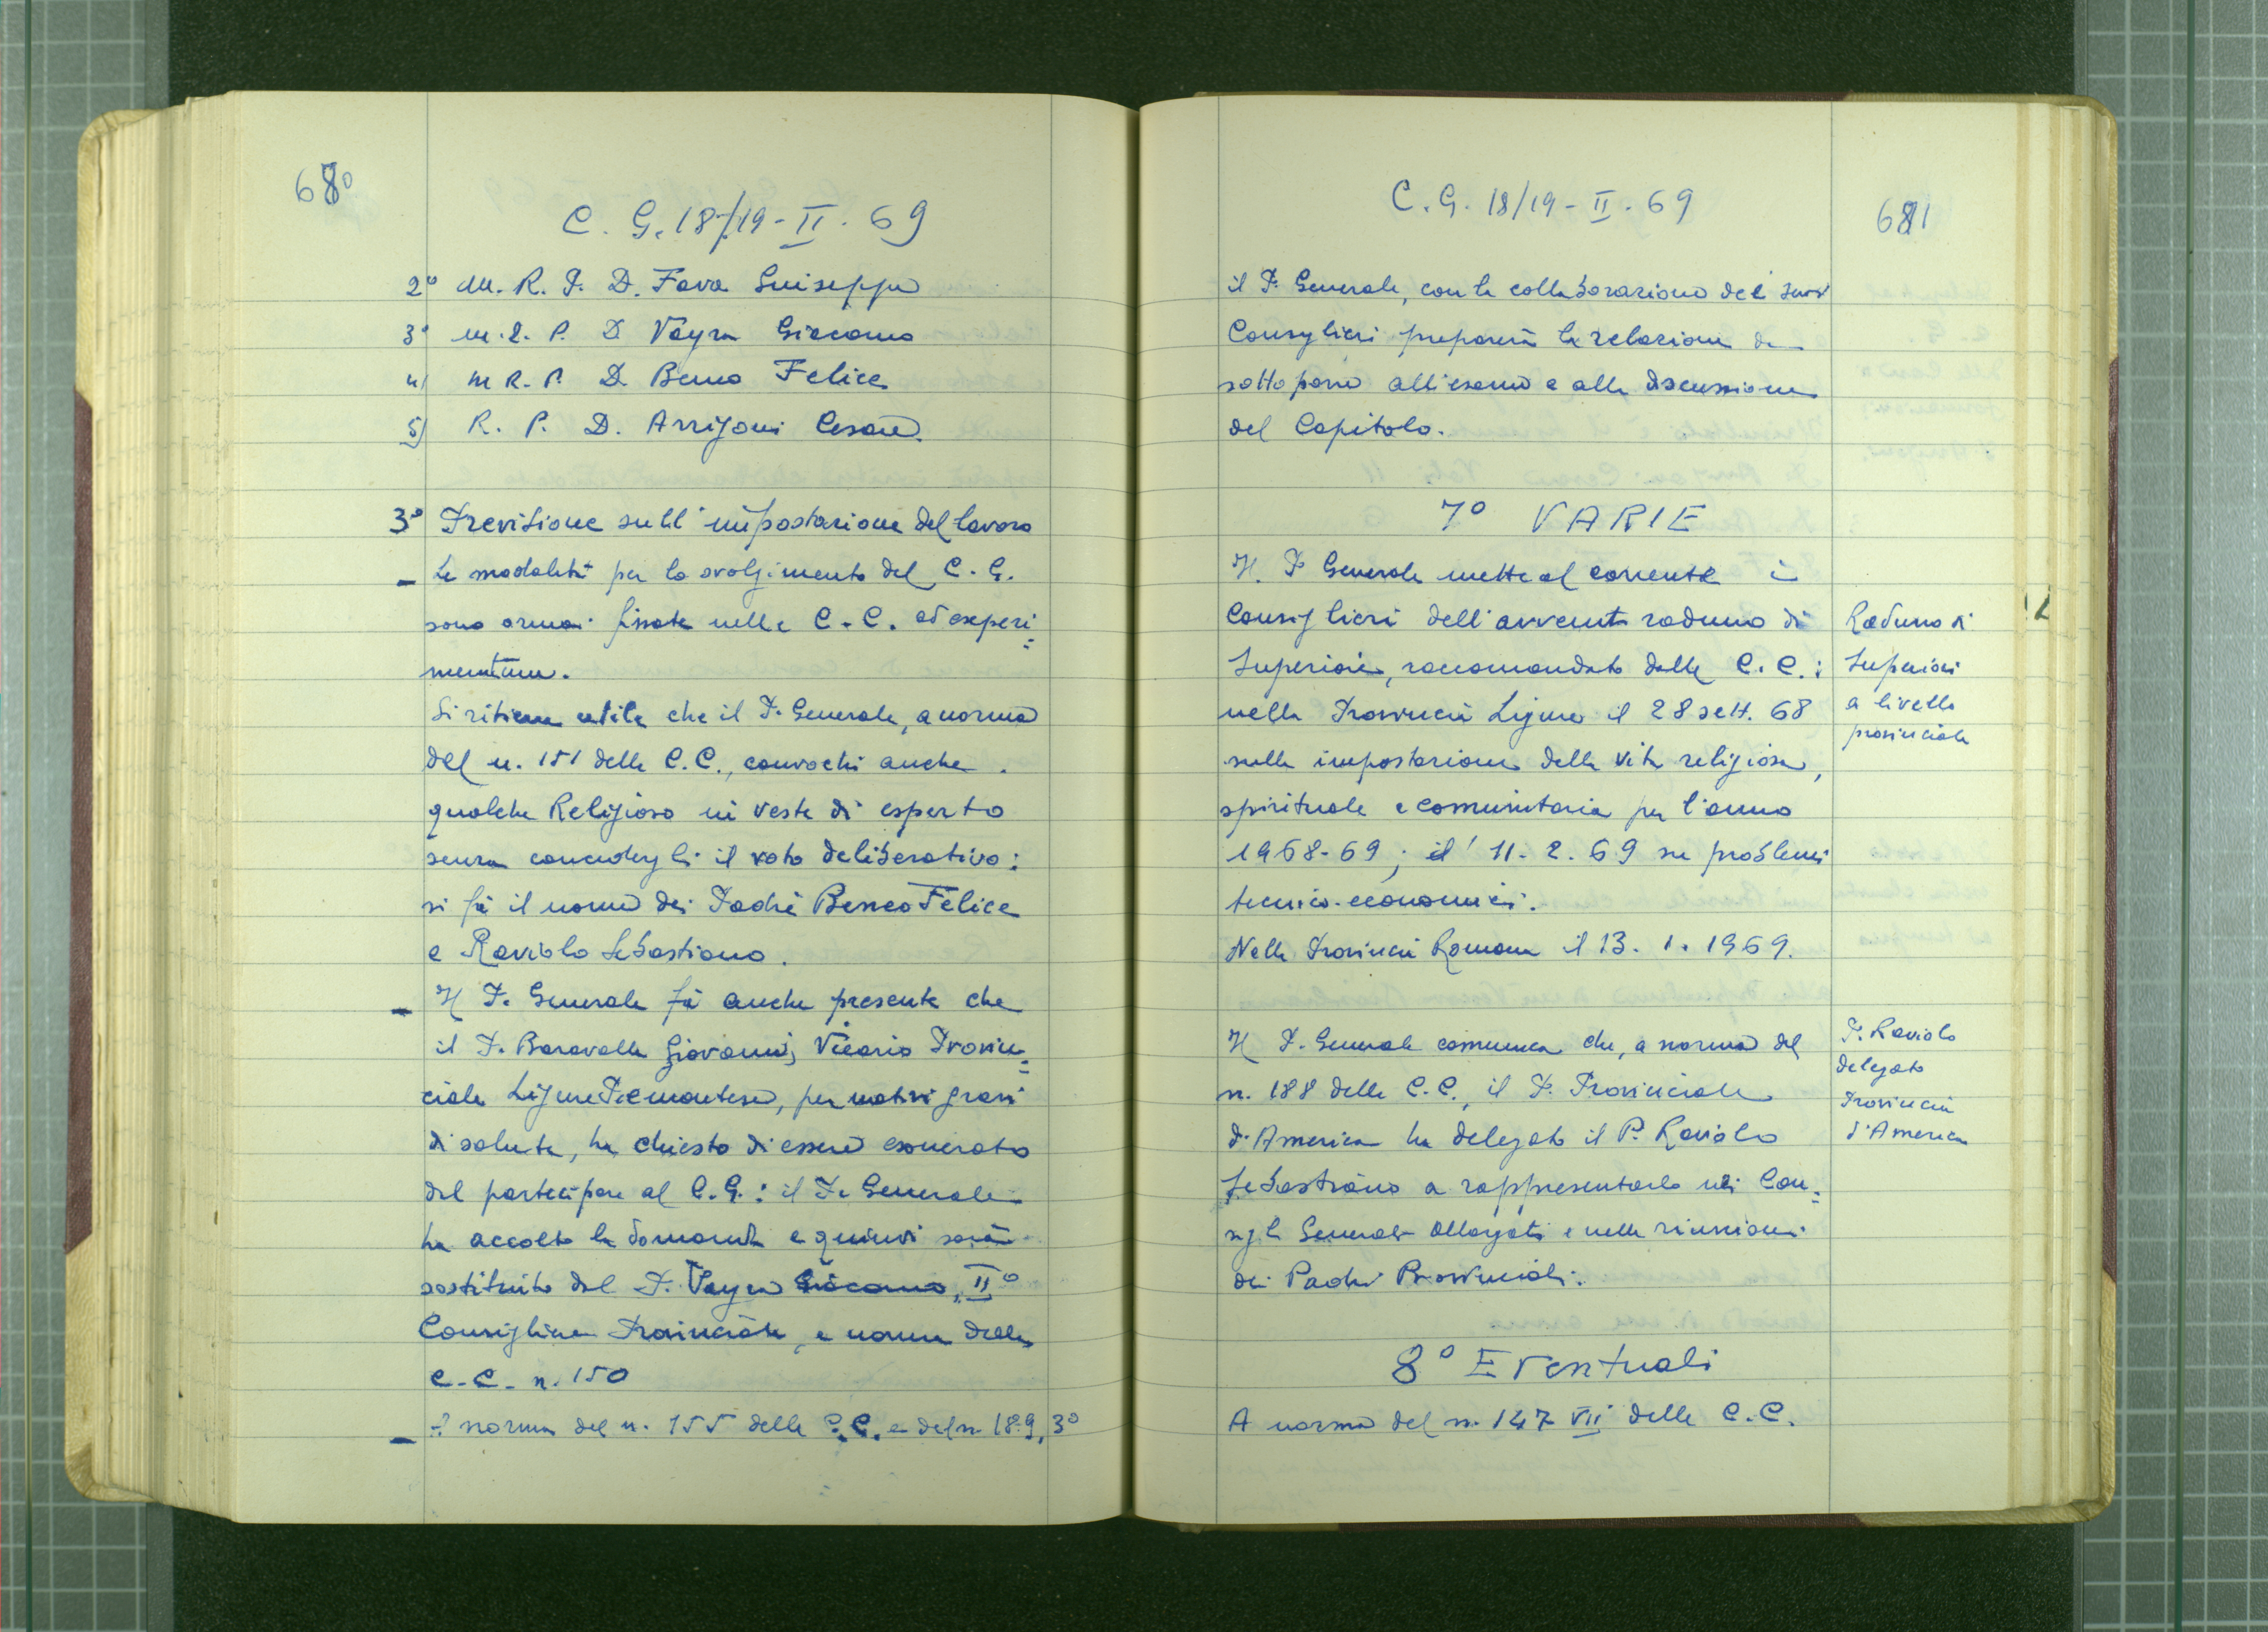 680
C. G. 18/19 - II. 69
2° M. R. P. D. Fava Giuseppe
3° M. R. P. D Vayra Giacomo
4) M R. P. D. Beneo Felice
5) R. P. D. Arrigoni Cesare.
3° Previsione sull'impostazione del lavoro
- Le modalità per lo svolgimento del C. G.
sono ormai fissate nelle C. C. ad experi=
mentum.
Si ritiene utile che il P. Generale, a norma
del n. 151 delle C.C., convochi anche
qualche Religioso in veste di esperto
senza concedergli il voto deliberativo:
si fa il nome dei Padri Beneo Felice
e Raviolo Sebastiano.
- Il P. Generale fa anche presente che
il P. Baravalle Giovanni, Vicario Provin=
ciale Ligure Piemontese, per motivi gravi
di salute, ha chiesto di essere esonerato
dal partecipare al C.G.: il P. Generale
ha accolto la domanda e quindi sarà
sostituito dal P. Vayra Giacomo, II°
Consigliere Provinciale, a norma delle
C.C. n. 150
- A norma del n. 155 delle C.C. e del n. 189, 3°
C. G. 18/19 - II. 69
681
il P. Generale, con la collaborazione dei suoi
Consiglieri preparerà la relazione da
sottoporre all'esame e alla discussione
del Capitolo.
7° VARIE
Il P. Generale mette al corrente i
Consiglieri dell'avvenuto raduno di
Superiori, raccomandato dalle C. C.:
nella Provincia Ligure il 28 sett. 68
sulla impostazione della vita religiosa,
spirituale e comunitaria per l'anno
1968-69; il 11. 2. 69 su problemi
tecnico-economici.
Nella Provincia Romana il 13. 1. 1969.
Raduno di
Superiori
a livello
provinciale
Il P. Generale comunica che, a norma del
n. 188 delle C.C., il P. Provinciale
d'America ha delegato il P. Raviolo
Sebastiano a rappresentarlo nei Con=
sigli Generali Allargati e nelle riunioni
dei Padri Provinciali.
P. Raviolo
delegato
Provincia
d'America
8° Eventuali
A norma del n. 147 VII delle C.C.